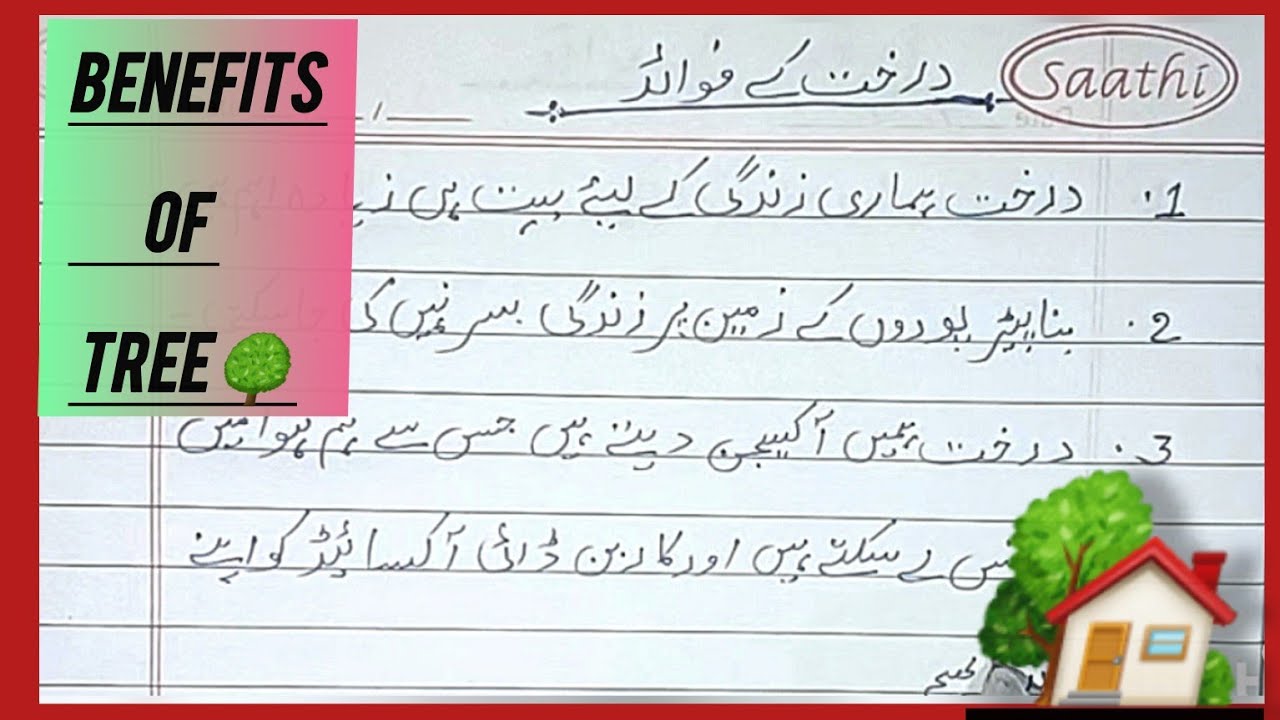 BENEFITS
OF
TREE
Saathi
درخت کے فوائد
Date
1. درخت ہماری زندگی کے لیئے بہت ہی زیادہ اہم
2. بنا پیڑ پودوں کے زمین پر زندگی بسر نہیں کی جا سکتی -
3. درخت ہمیں آکسیجن دیتے ہیں جس سے ہم ہوا میں
لے سکتے ہیں اور کاربن ڈائی آکسائیڈ کو اپنے